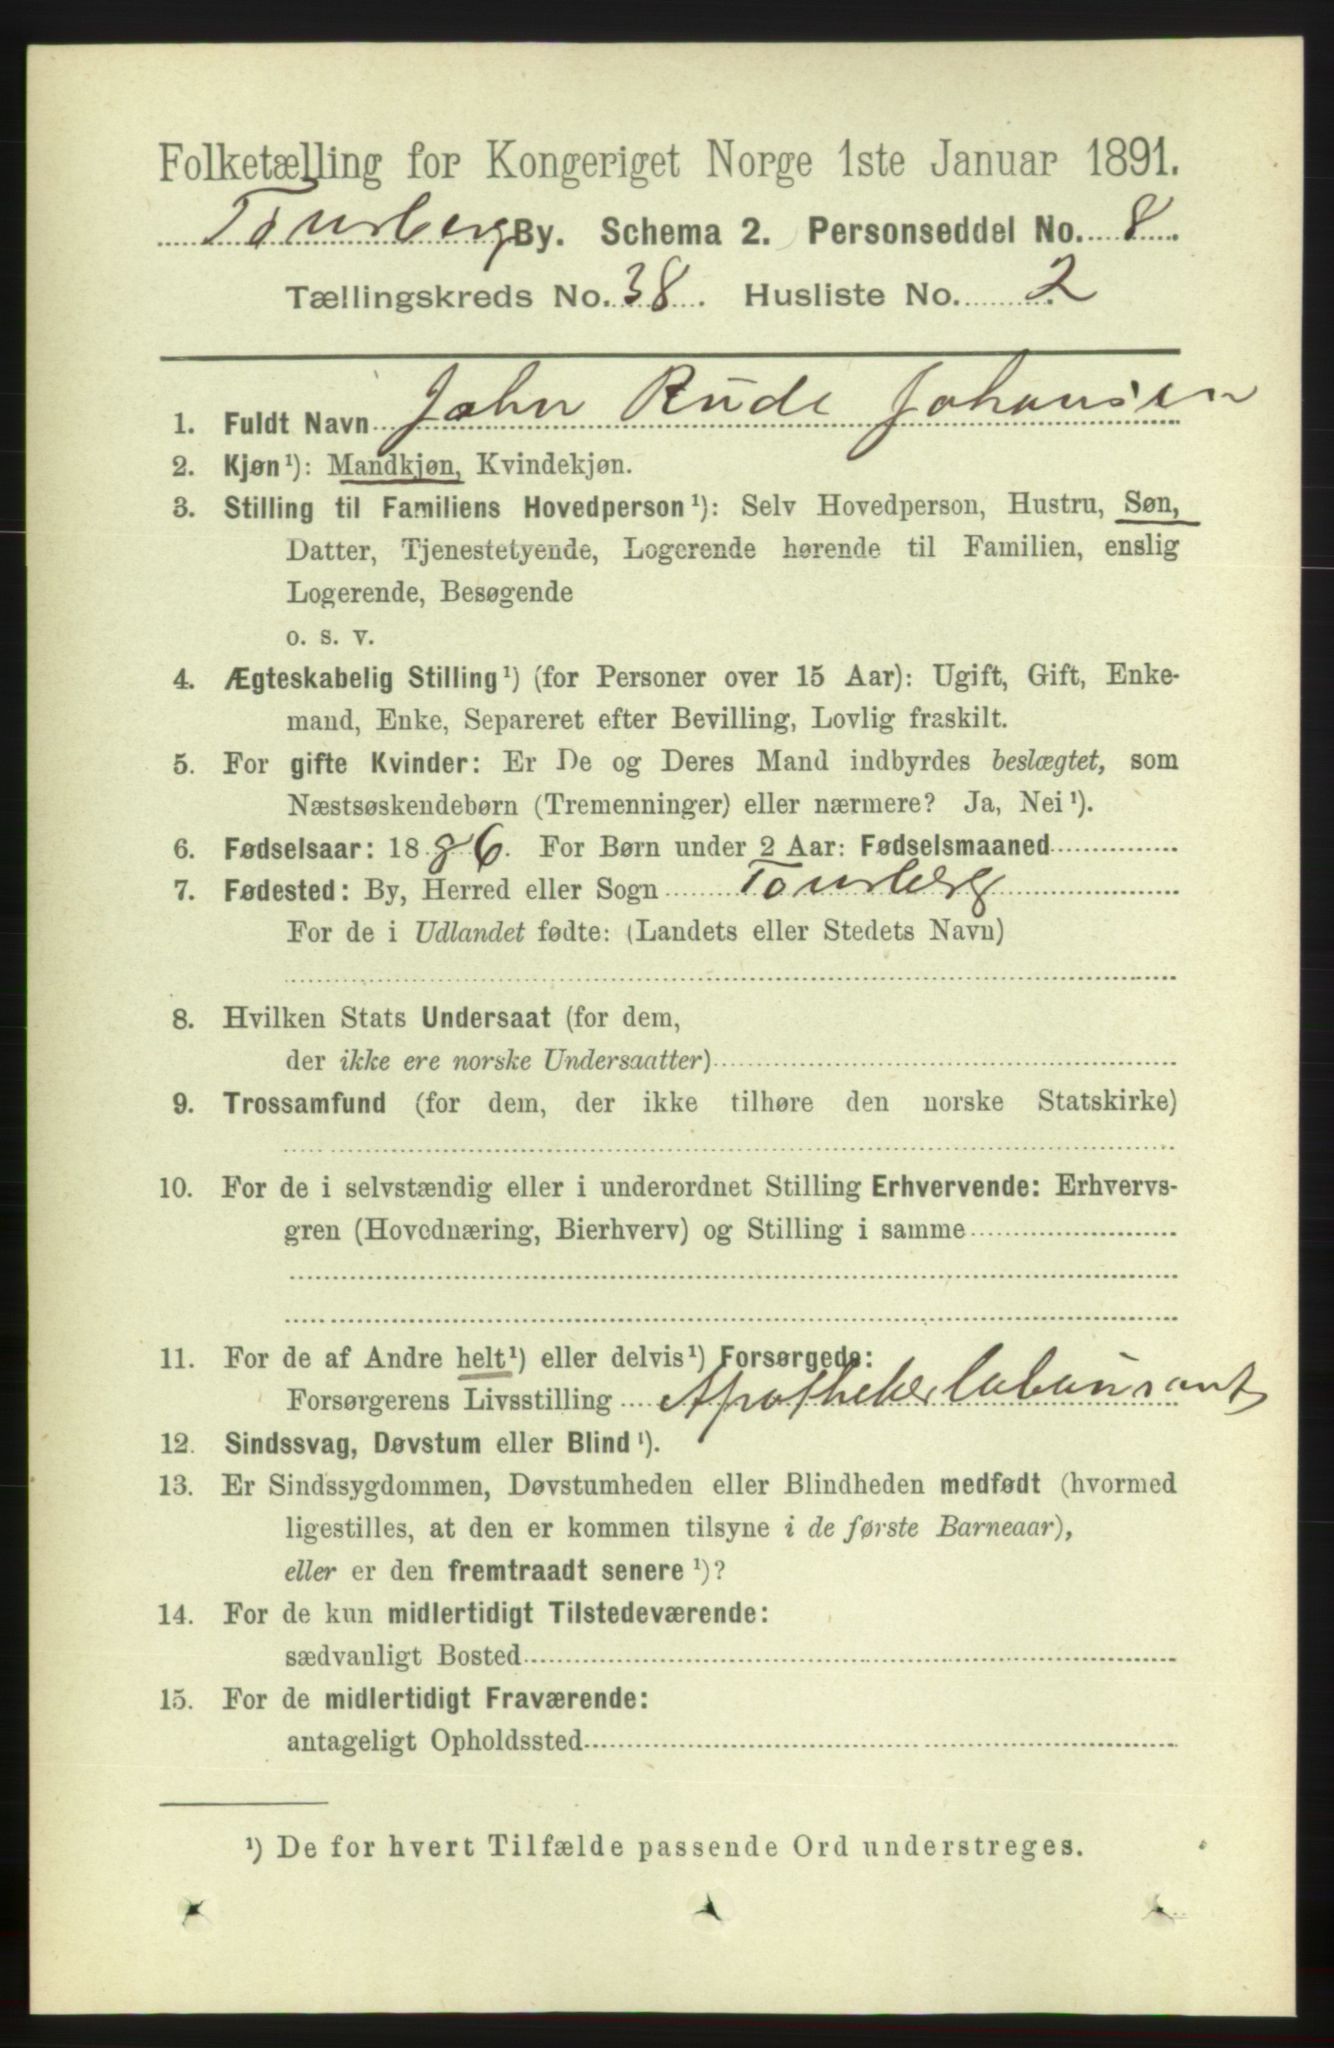 Folketælling for Kongeriget Norge 1ste Januar 1891.
Tønsberg By. Schema 2. Personseddel No. 8.
Tællingskreds No. 38. Husliste No. 2
1. Fuldt Navn John Rude Johansen
2. Kjøn¹): Mandkjøn, Kvindekjøn.
3. Stilling til Familiens Hovedperson¹): Selv Hovedperson, Hustru, Søn,
Datter, Tjenestetyende, Logerende hørende til Familien, enslig
Logerende, Besøgende
o. s. v.
4. Ægteskabelig Stilling¹) (for Personer over 15 Aar): Ugift, Gift, Enke-
mand, Enke, Separeret efter Bevilling, Lovlig fraskilt.
5. For gifte Kvinder: Er De og Deres Mand indbyrdes beslægtet, som
Næstsøskendebørn (Tremenninger) eller nærmere? Ja, Nei¹).
6. Fødselsaar: 1886. For Børn under 2 Aar: Fødselsmaaned
7. Fødested: By, Herred eller Sogn Tønsberg
For de i Udlandet fødte: (Landets eller Stedets Navn)
8. Hvilken Stats Undersaat (for dem,
der ikke ere norske Undersaatter)
9. Trossamfund (for dem, der ikke tilhøre den norske Statskirke)
10. For de i selvstændig eller i underordnet Stilling Erhvervende: Erhvervs-
gren (Hovednæring, Bierhverv) og Stilling i samme
11. For de af Andre helt¹) eller delvis¹) Forsørgede:
Forsørgerens Livsstilling Apothekerlaborant
12. Sindssvag, Døvstum eller Blind¹).
13. Er Sindssygdommen, Døvstumheden eller Blindheden medfødt (hvormed
ligestilles, at den er kommen tilsyne i de første Barneaar),
eller er den fremtraadt senere¹)?
14. For de kun midlertidigt Tilstedeværende:
sædvanligt Bosted
15. For de midlertidigt Fraværende:
antageligt Opholdssted
¹) De for hvert Tilfælde passende Ord understreges.